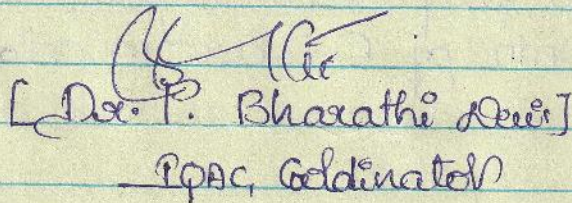 [Dr. P. Bharathi Devi]
IQAC, Coldinator